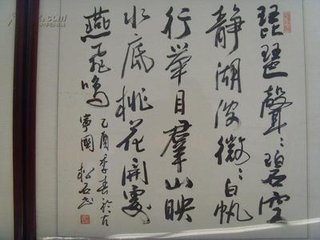 琵琶聲〻碧空
靜湖波微〻白帆
行舉目羣山映
水底桃花開處
燕飛鳴
乙酉季春於古
寧國